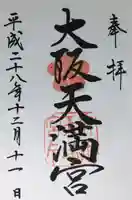 奉拝
大阪天満宮
平成二十八年十二月十一日